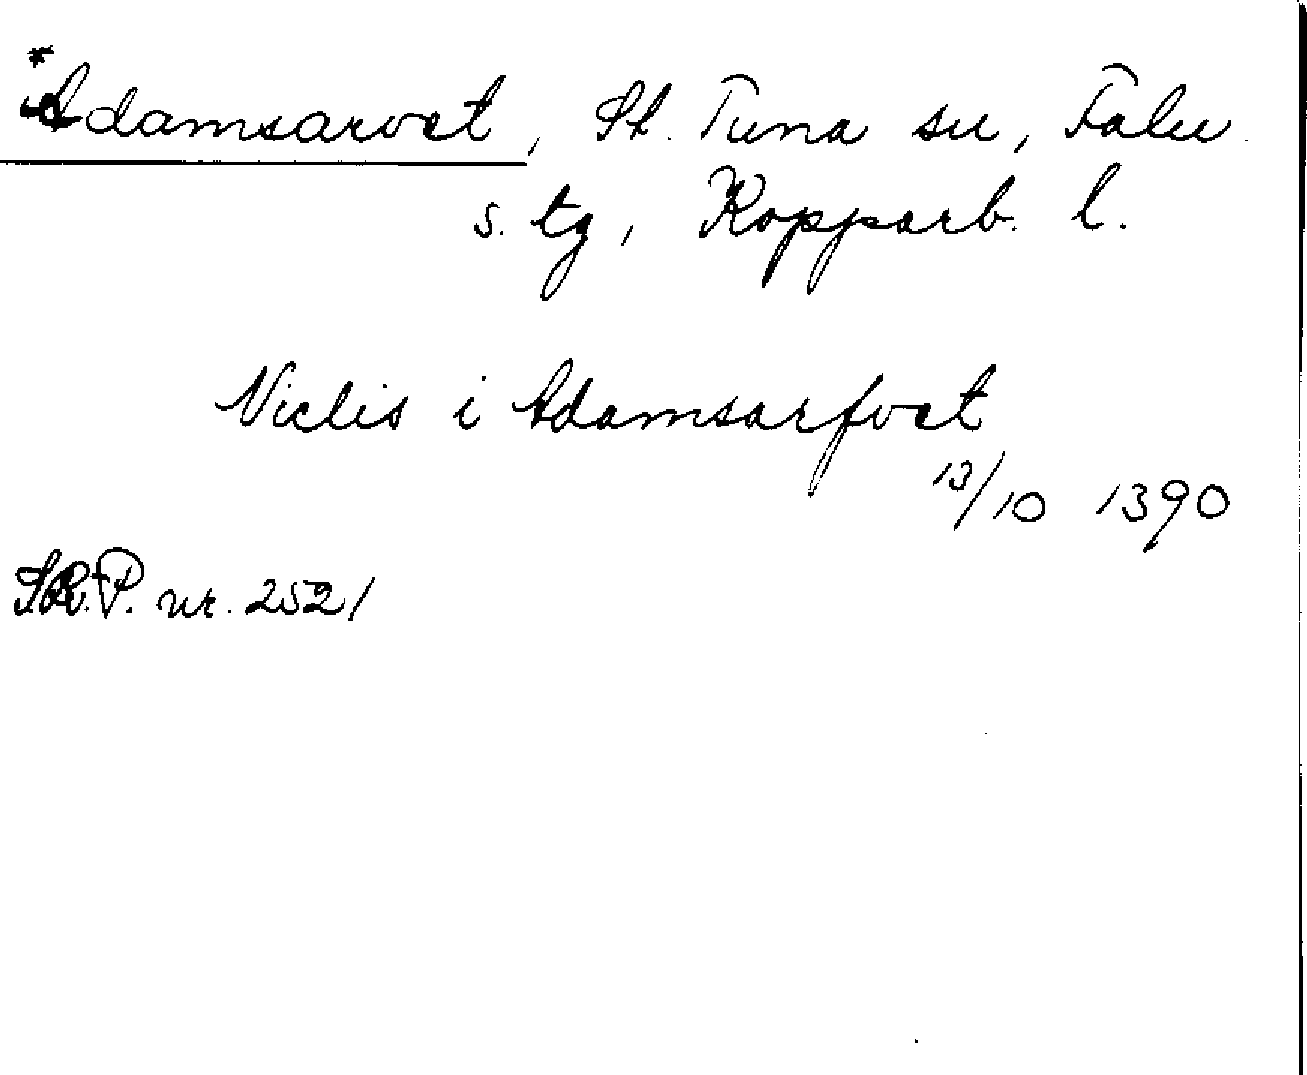 *Adamsarvet, St. Tuna sn, Falu
s. tg, Kopparb. l.
Niclis i Adamsarfvet
13/10 1390
S.R.P. nr. 2521